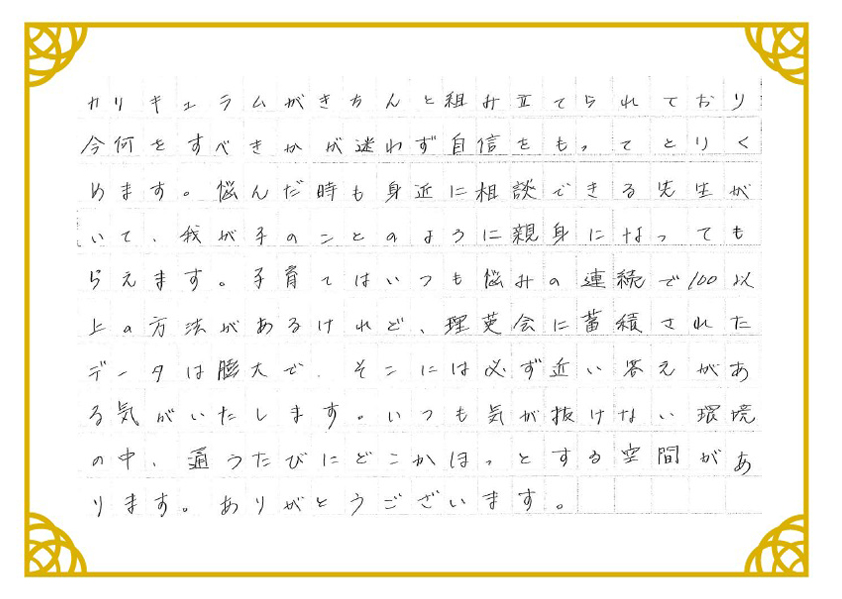 カリキュラムがきちんと組み立てられており
今何をすべきかが迷わず自信をもってとりく
めます。悩んだ時も身近に相談できる先生が
いて、我が子のことのように親身になっても
らえます。子育てはいつも悩みの連続で100以
上の方法があるけれど、理英会に蓄積された
データは膨大で、そこには必ず近い答えがあ
る気がいたします。いつも気が抜けない環境
の中、通うたびにどこかほっとする空間があ
ります。ありがとうございます。